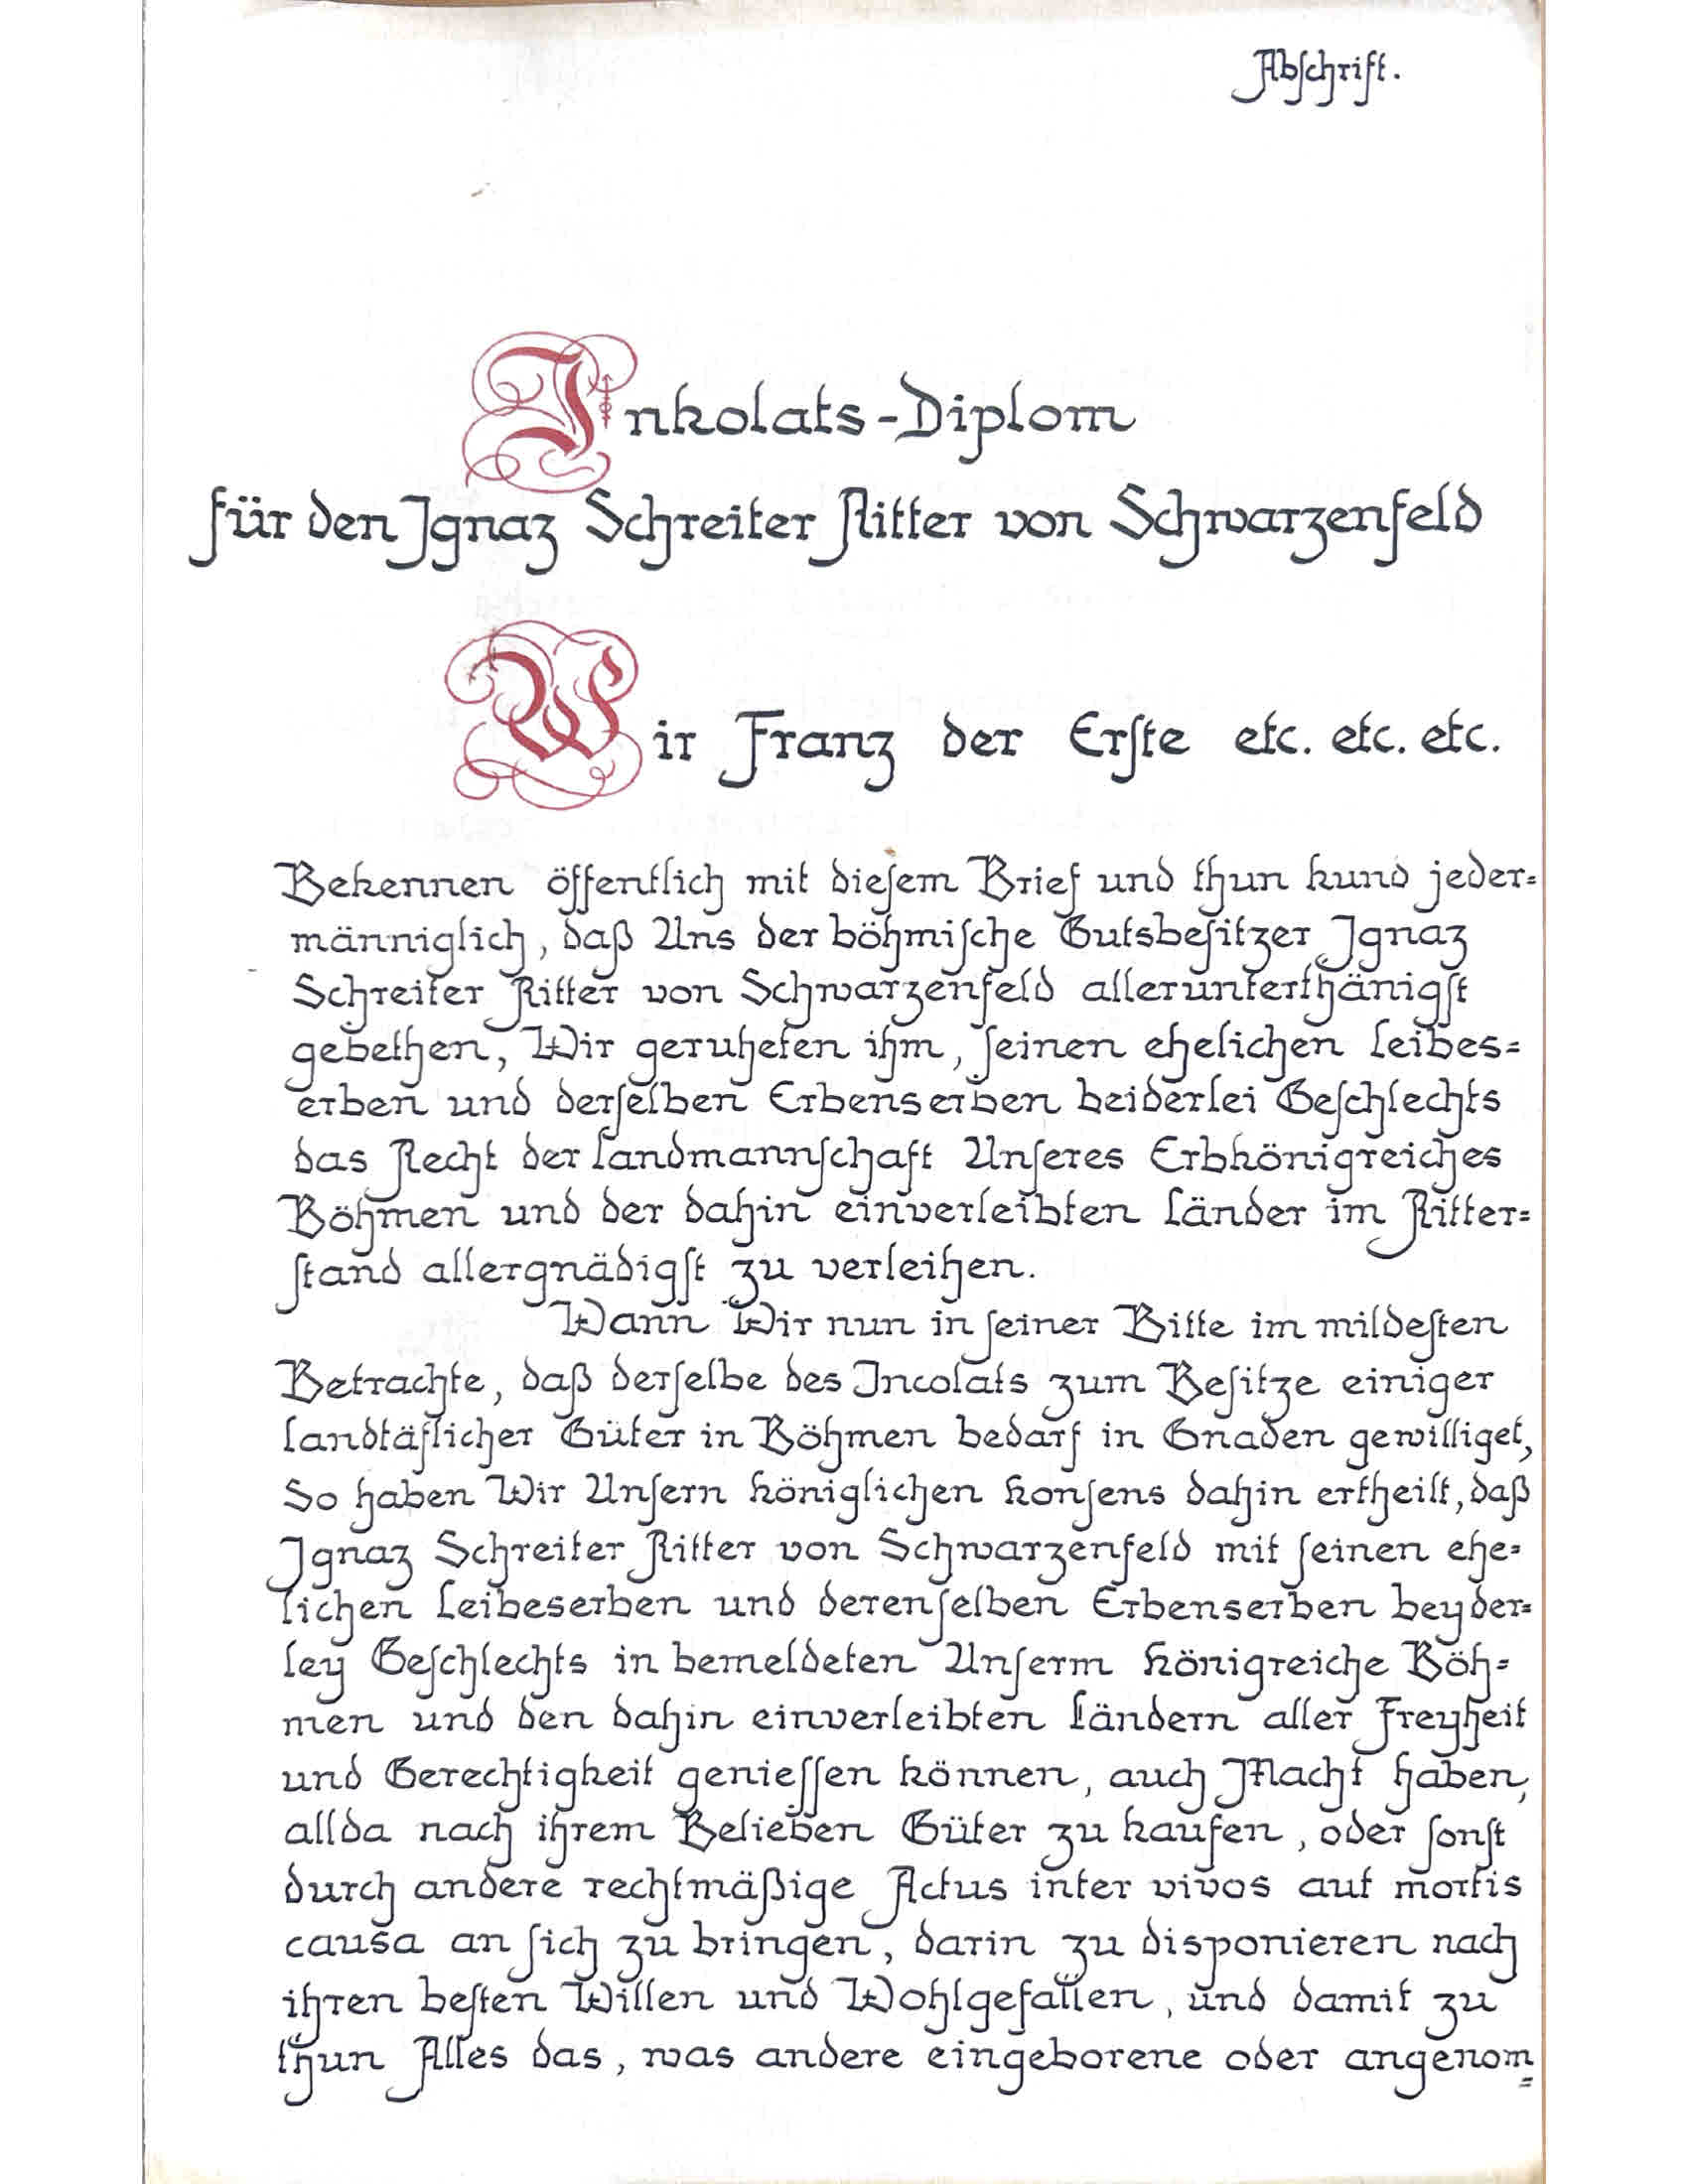 Abschrift.
Inkolats-Diplom
für den Ignaz Schreiter Ritter von Schwarzenfeld
Wir Franz der Erste etc. etc. etc.
Bekennen öffentlich mit diesem Brief und thun kund jeder=
männiglich, daß Uns der böhmische Gutsbesitzer Ignaz
Schreiter Ritter von Schwarzenfeld allerunterthänigst
gebethen, Wir geruheten ihm, seinen ehelichen Leibes=
erben und derselben Erbenserben beiderlei Geschlechts
das Recht der Landmannschaft Unseres Erbkönigreiches
Böhmen und der dahin einverleibten Länder im Ritter=
stand allergnädigst zu verleihen.
Wann Wir nun in seiner Bitte im mildesten
Betrachte, daß derselbe des Incolats zum Besitze einiger
landtäflicher Güter in Böhmen bedarf in Gnaden gewilliget,
So haben Wir Unsern königlichen Konsens dahin ertheilt, daß
Ignaz Schreiter Ritter von Schwarzenfeld mit seinen ehe=
lichen Leibeserben und derenselben Erbenserben beyder=
ley Geschlechts in bemeldeten Unserm Königreiche Böh=
men und den dahin einverleibten Ländern aller Freyheit
und Gerechtigkeit geniessen können, auch Macht haben,
allda nach ihrem Belieben Güter zu kaufen, oder sonst
durch andere rechtmäßige Actus inter vivos aut mortis
causa an sich zu bringen, darin zu disponieren nach
ihren besten Willen und Wohlgefallen, und damit zu
thun Alles das, was andere eingeborene oder angenom=